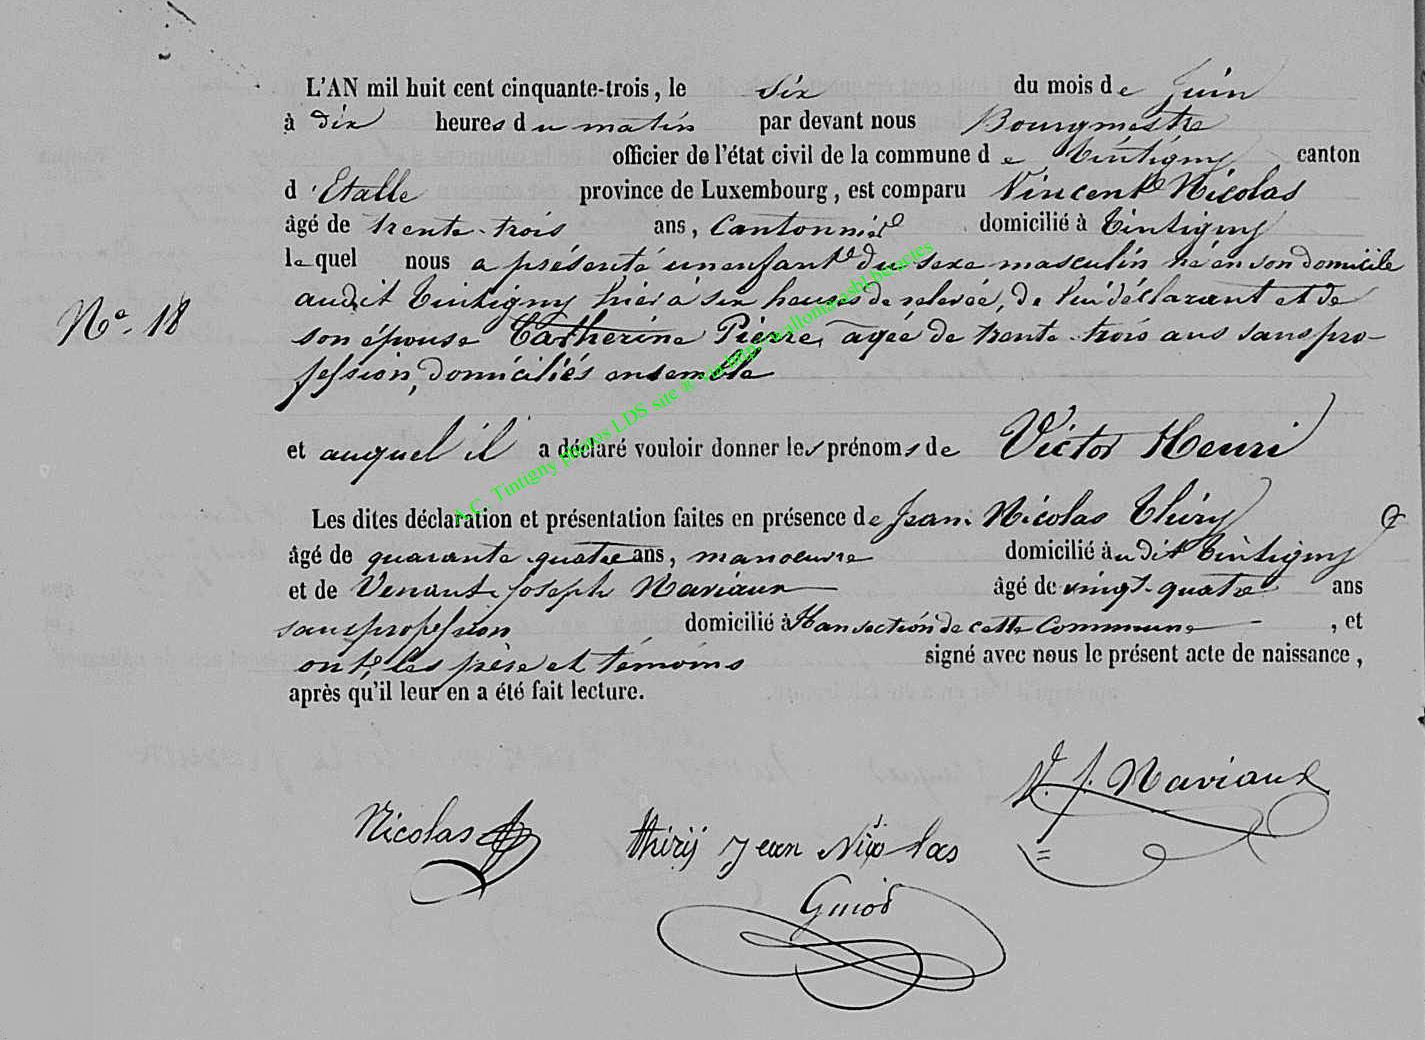 L'AN mil huit cent cinquante-trois, le six du mois de Juin
à dix heures du matin par devant nous Bourgmestre
officier de l'état civil de la commune de Tintigny canton
d'Etalle province de Luxembourg, est comparu Vincent Nicolas
âgé de trente-trois ans, Cantonnier domicilié à Tintigny
lequel nous a présenté un enfant du sexe masculin né en son domicile
audit Tintigny hier à six heures de relevée, de lui déclarant et de
son épouse Catherine Pierre, agée de trente-trois ans sans pro-
fession, domiciliés ensemble
N° 18
et auquel il a déclaré vouloir donner les prénoms de Victor Henri
Les dites déclaration et présentation faites en présence de Jean Nicolas Thiry
âgé de quarante quatre ans, manoeuvre domicilié audit Tintigny
et de Venant Joseph Naviaux âgé de vingt-quatre ans
sans profession domicilié à Han section de cette Commune, et
ont, les père et témoins signé avec nous le présent acte de naissance,
après qu'il leur en a été fait lecture.
V. J. Naviaux
Nicolas thirij jean Nicolas
Guiod
A.C. Tintigny photos LDS site ® via http://wallonia.asbl.be/actes